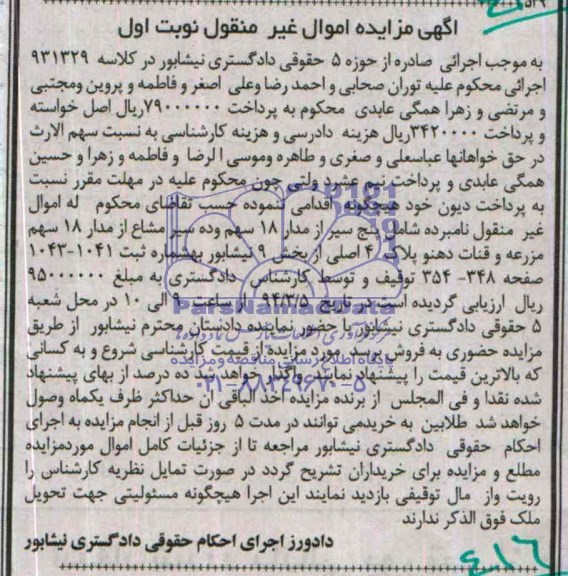 ۵۲۹
آگهی مزایده اموال غیر منقول نوبت اول
به موجب اجرائی صادره از حوزه ۵ حقوقی دادگستری نیشابور در کلاسه ۹۳۱۳۲۹
اجرائی محکوم علیه توران صحابی و احمد رضا وعلی اصغر و فاطمه و پروین ومجتبی
و مرتضی و زهرا همگی عابدی محکوم به پرداخت ۷۹۰۰۰۰۰۰ریال اصل خواسته
و پرداخت ۳۴۲۰۰۰۰ریال هزینه دادرسی و هزینه کارشناسی به نسبت سهم الارث
در حق خواهانها عباسعلی و صغری و طاهره وموسی ا لرضا و فاطمه و زهرا و حسین
همگی عابدی و پرداخت نیم عشرد ولتی چون محکوم علیه در مهلت مقرر نسبت
به پرداخت دیون خود هیچگونه اقدامی ننموده حسب تقاضای محکوم له اموال
غیر منقول نامبرده شامل پنج سیر از مدار ۱۸ سهم وده سیر مشاع از مدار ۱۸ سهم
مزرعه و قنات دهنو پلاک ۴ اصلی از بخش ۹ نیشابور بهشماره ثبت ۱۰۴۱-۱۰۴۳
صفحه ۳۴۸- ۳۵۴ توقیف و توسط کارشناس دادگستری به مبلغ ۹۵۰۰۰۰۰۰
ریال ارزیابی گردیده است در تاریخ ۹۴/۳/۵ از ساعت ۹ الی ۱۰ در محل شعبه
۵ حقوقی دادگستری نیشابور با حضور نماینده دادستان محترم نیشابور از طریق
مزایده حضوری به فروش برسد مورد مزایده از قیمت کارشناسی شروع و به کسانی
که بالاترین قیمت را پیشنهاد نمایند واگذار خواهد شد ده درصد از بهای پیشنهاد
شده نقدا و فی المجلس از برنده مزایده اخذ الباقی آن حداکثر ظرف یکماه وصول
خواهد شد طلابین به خریدمی توانند در مدت ۵ روز قبل از انجام مزایده به اجرای
احکام حقوقی دادگستری نیشابور مراجعه تا از جزئیات کامل اموال موردمزایده
مطلع و مزایده برای خریداران تشریح گردد در صورت تمایل نظریه کارشناس را
رویت واز مال توقیفی بازدید نمایند این اجرا هیچگونه مسئولیتی جهت تحویل
ملک فوق الذکر ندارند
دادورز اجرای احکام حقوقی دادگستری نیشابور
ParsNamadData
پایگاه اطلاع رسانی مناقصه و مزایده
۰۲۱-۸۸۳۴۹۶۷۰-۵